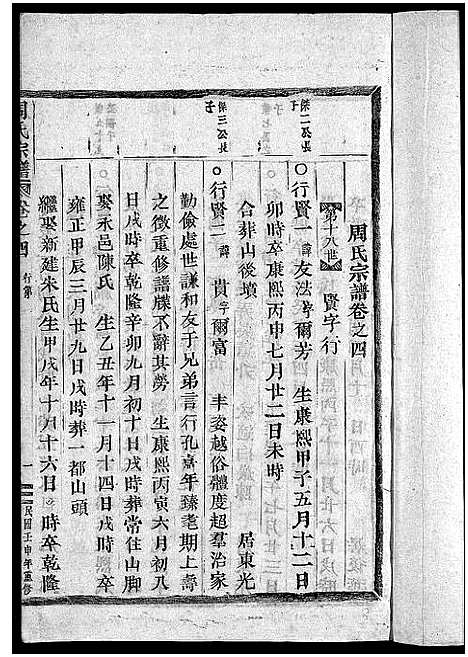 周氏宗譜卷之四
第十八世　賢字行
傑二公長子
○行賢一 諱友法 字爾芳　生康熙甲子五月十二日
卯時卒康熙丙申七月廿二日未時　居東光
合葬山後墳
傑三公長子
○行賢二 諱貴 字爾富　丰姿越俗體度超羣治家
勤儉處世謙和友于兄弟言行孔嘉年臻耄期上壽
之徵重修譜牒不辭其勞　生康熙丙寅六月初八
日戌時卒乾隆辛卯九月初十日戌時葬常往山脚
○娶永邑陳氏　生乙丑年十一月十四日戌時卒
雍正甲辰三月廿九日戌時葬一都山頭
繼娶新建朱氏生甲戌年十月十六日　時卒乾隆
周氏宗譜
卷之四
行第
一
民國壬申年重修